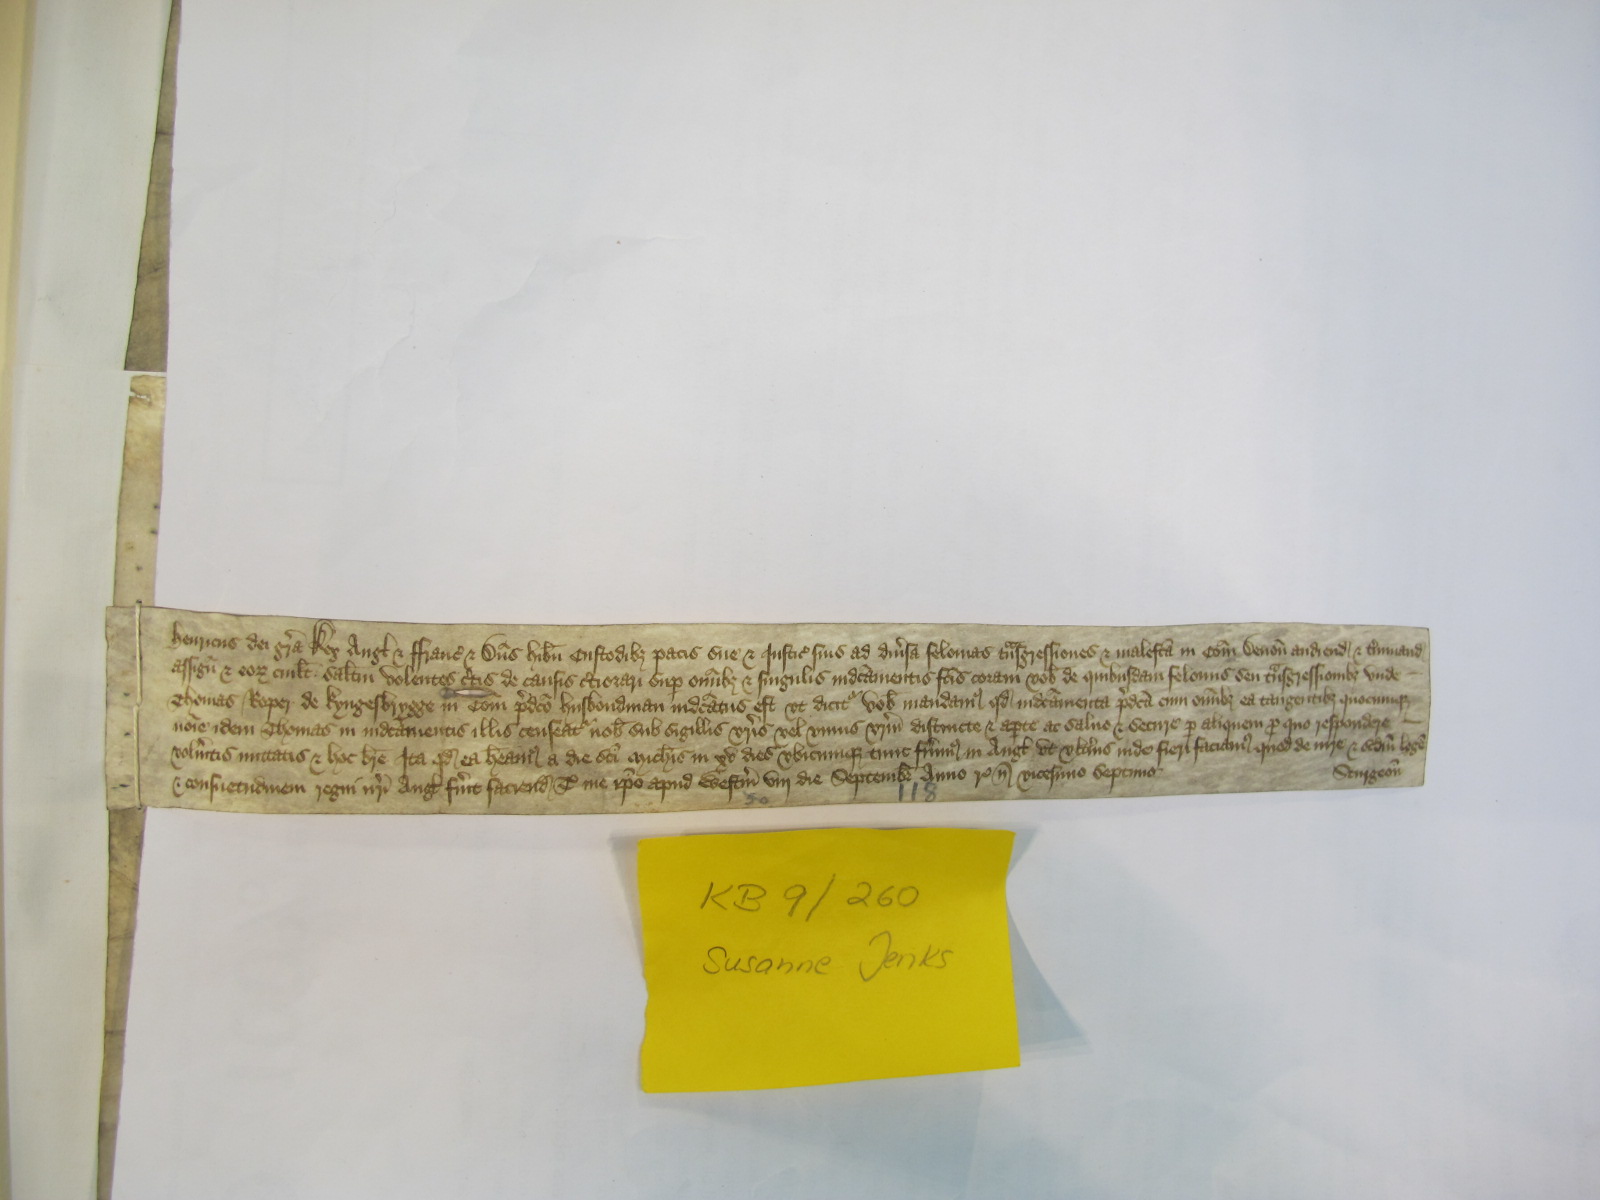 Henricus dei gr̄a Rex Angł & ffranc̄ & Dn̄s Hib̄n Custodibȝ pacis sue & Justic̄ suis ad diu̔sa felonias tn̄sgressiones & malefc̄a in Com̄ Devon̄ audiend & t̄minand
assign̄ & eorꝝ cuilt̄ saltm̄ Volentes c̄tis de causis c̄tiorari sup̱ om̄ibȝ & singulis indc̄amentis fc̄is coram vob̄ de quibusdam feloniis seu tn̄sgressionibȝ vnde
Thomas Roper de Kyngesbrygge in Com̄ p̄dc̄o husbondman indc̄atus est vt dicit᷑ vob̄ mandam᷒ qd̄ indc̄amenta p̄dc̄a cum om̄ibȝ ea tangentibȝ quocumqȝ
noīe idem Thomas in indc̄amentis illis censeat᷑ nob̄ sub sigillis vr̄is vel vnius vr̄m̄ distincte & ap̱te ac saluo & secure p̱ aliquem p̱ quo respondere
volūitis mittatis & hoc br̄e Ita qd̄ ea h̄eam᷒ a die sc̄i Mich̄is in xv dies vbicumqȝ tunc fu̔im᷒ in Angł vt vlt̄ius inde fieri faciam᷒ quod de iure & scdm̄ legē
& consuetudinem regni nr̄i Angł fu̔it faciend T me ip̄o apud Westm̄ viij die Septembr̄ Anno r̄ n̄ vicesimo septimo Sturgeon̄
50
118
KB 9/260
Susanne Jenks